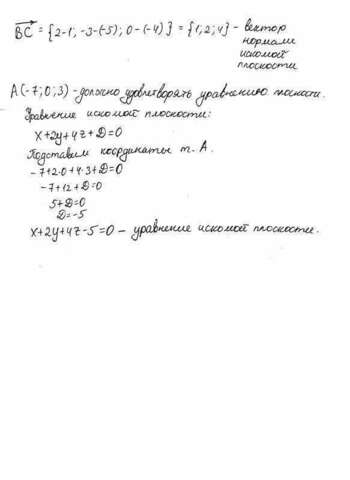 BC = {2-1; -3-(-5); 0-(-4)} = {1; 2; 4} - вектор
нормали
искомой
плоскости
A(-7; 0; 3) - должно удовлетворять уравнению плоскости.
Уравнение искомой плоскости:
x+2y+4z+D=0
Подставим координаты т. А.
-7+2·0+4·3+D=0
-7+12+D=0
5+D=0
D=-5
x+2y+4z-5=0 - уравнение искомой плоскости.